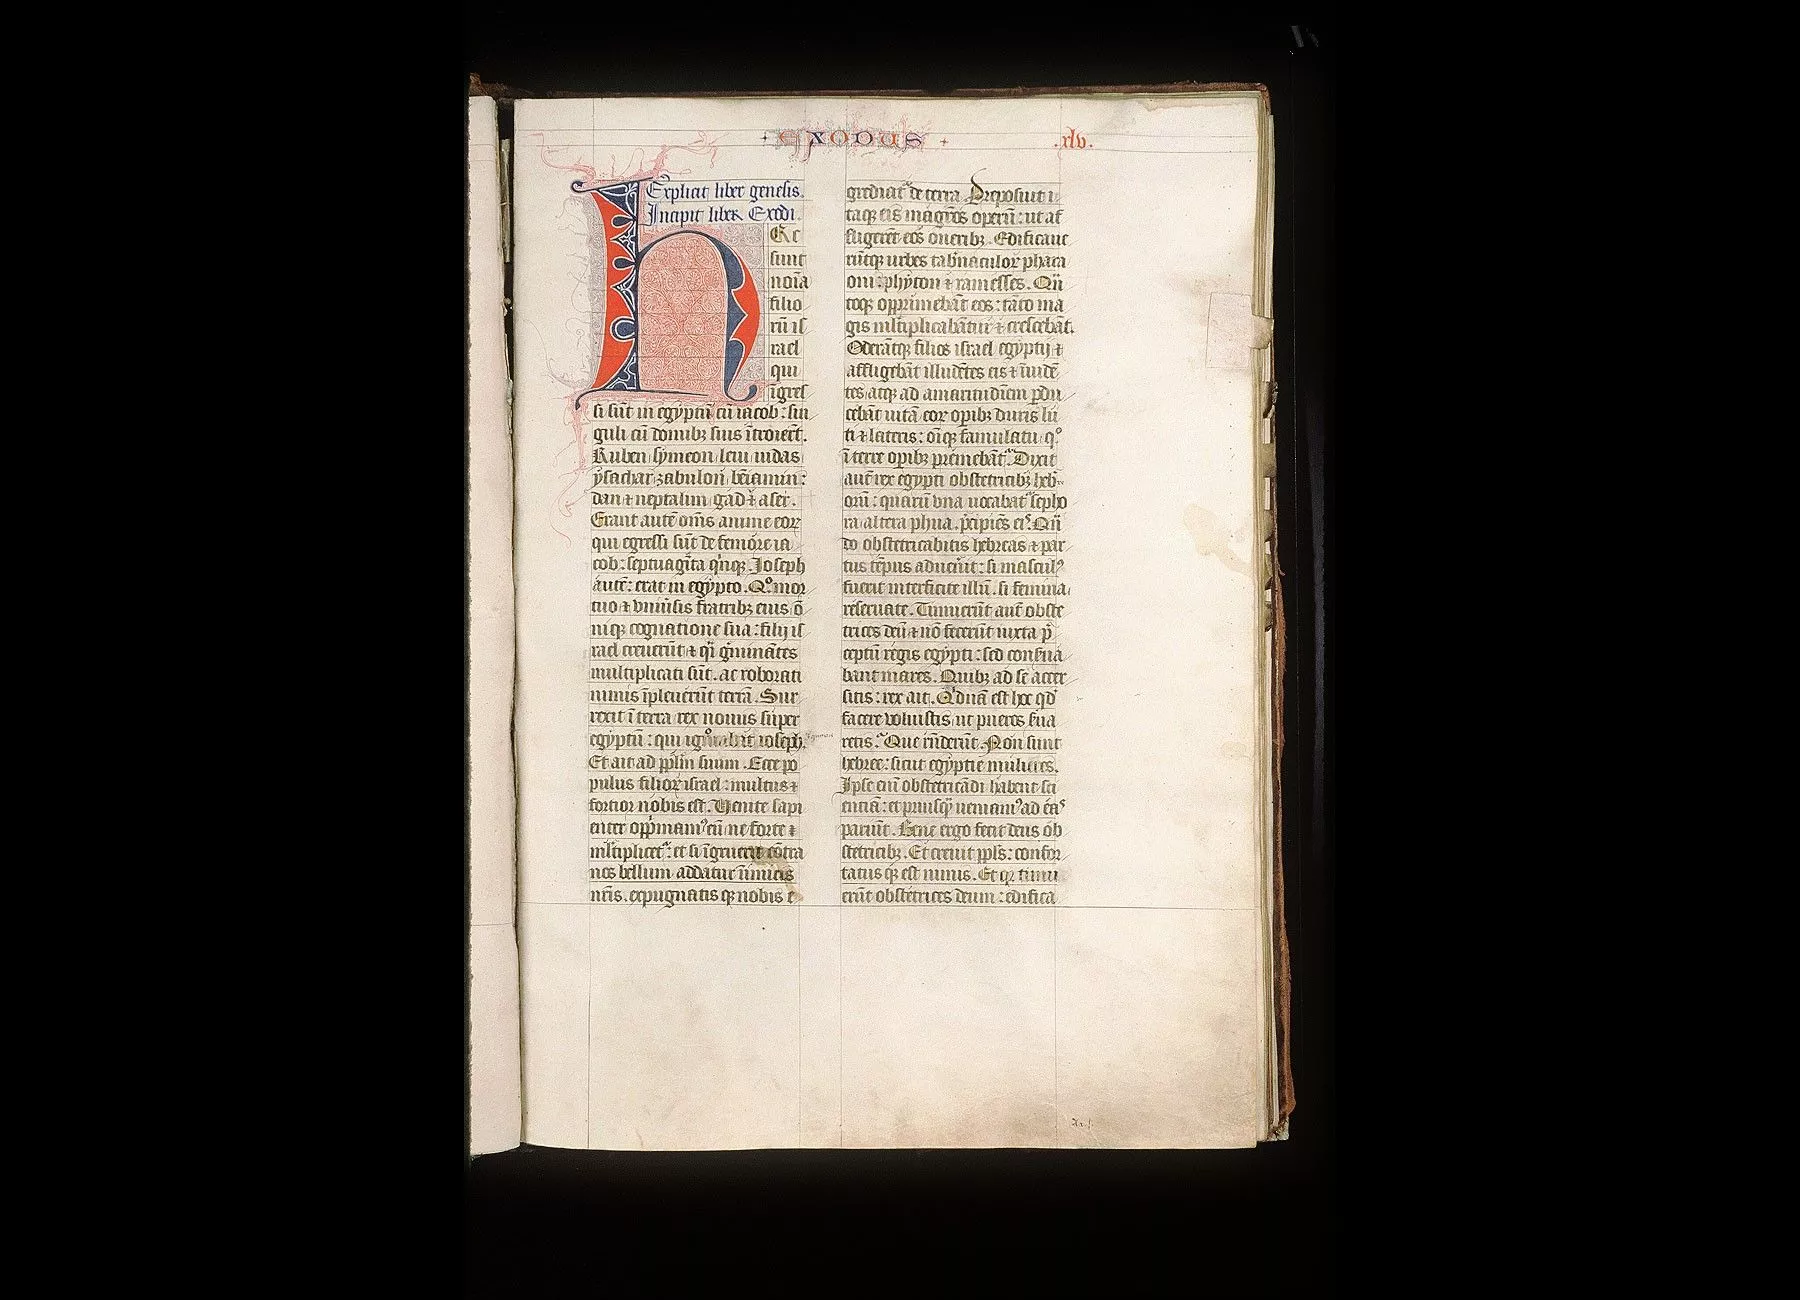 EXODUS
.xlv.
Explicit liber genesis.
Incipit liber Exodi.
hEc
sunt
noīa
filio
rū is
rael
qui
īgres
si sūt in egyptū cū iacob : sin
guli cū domibꝫ suis ītroierūt.
Ruben symeon leui iudas
ysachar zabulon beniamin :
dan ⁊ neptalim gad ⁊ aser .
Erant autē om̄s anime eoꝝ
qui egressi sūt de femore ia
cob : septuagīta qͥnqꝫ Joseph
autē : erat in egypto . Qͦ mor
tuo ⁊ vniūsis fratribꝫ eius ō
niqꝫ cognatione sua : filij is
rael creuerūt ⁊ qͣi gͥminātes
multiplicati sūt . ac roborati
nimis īpleuerūt terrā . Sur
rexit ī terra rex nouus super
egyptū : qui ignorabat ioseph .
Et ait ad pplm̄ suum . Ecce po
pulus filioꝝ israel : multus ⁊
fortior nobis est . Uenite sapi
enter opp̄mamꝰ eū ne forte ⁊
mltiplicet᷑ : et si īgruerit cōtra
nos bellum addatur īimicis
nr̄is . expugnatis qꝫ nobis e
grediat᷑ de terra . Preposuit i
taqꝫ eis magr̄os operū : ut af
fligerēt eos oneribꝫ . Edificaue
rūtqꝫ urbes tab̄naculoꝝ phara
oni : phyton ⁊ ramesses . Qn̄
toqꝫ opprimebāt eos : tāto ma
gis mltiplicabāt᷑ ⁊ crescebāt .
Oderātqꝫ filios israel egyptij ⁊
affligebāt illudētes eis ⁊ īuidē
tes atqꝫ ad amaritudīem ꝑdu
cebāt uitā eoꝝ opibꝫ duris lu
ti ⁊ lateris : oīqꝫ famulatu qͦ
ī terre opibꝫ premebāt᷑ . Dixit
aut̄ rex egypti obstetricibꝫ heb
orū : quarū vna uocabat᷑ sepho
ra altera phua . p̄cipiēs eis . Qn̄
do obstetricabitis hebreas ⁊ par
tus tēpus aduenit : si masculꝰ
fuerit interficite illū . si femina
reseruate . Timuerūt aut̄ obste
trices deū ⁊ nō fecerūt iuxta p̄
ceptū regis egypti : sed conserua
bant mares . Quibꝫ ad se accer
sitis : rex ait . Qͥdnā est hoc qd̄
facere voluistis ut pueros serua
retis . Que rn̄derūt . Non sunt
hebree : sicut egyptie mulieres .
Ipse enī obstetricādi habent sci
entiā : et priusqͣ ueniamꝰ ad eas
pariūt . Bene ergo fecit deus ob
stetricibꝫ . Et creuit ppls : confor
tatus qꝫ est nimis . Et qꝛ timu
erūt obstetrices deum : edifica